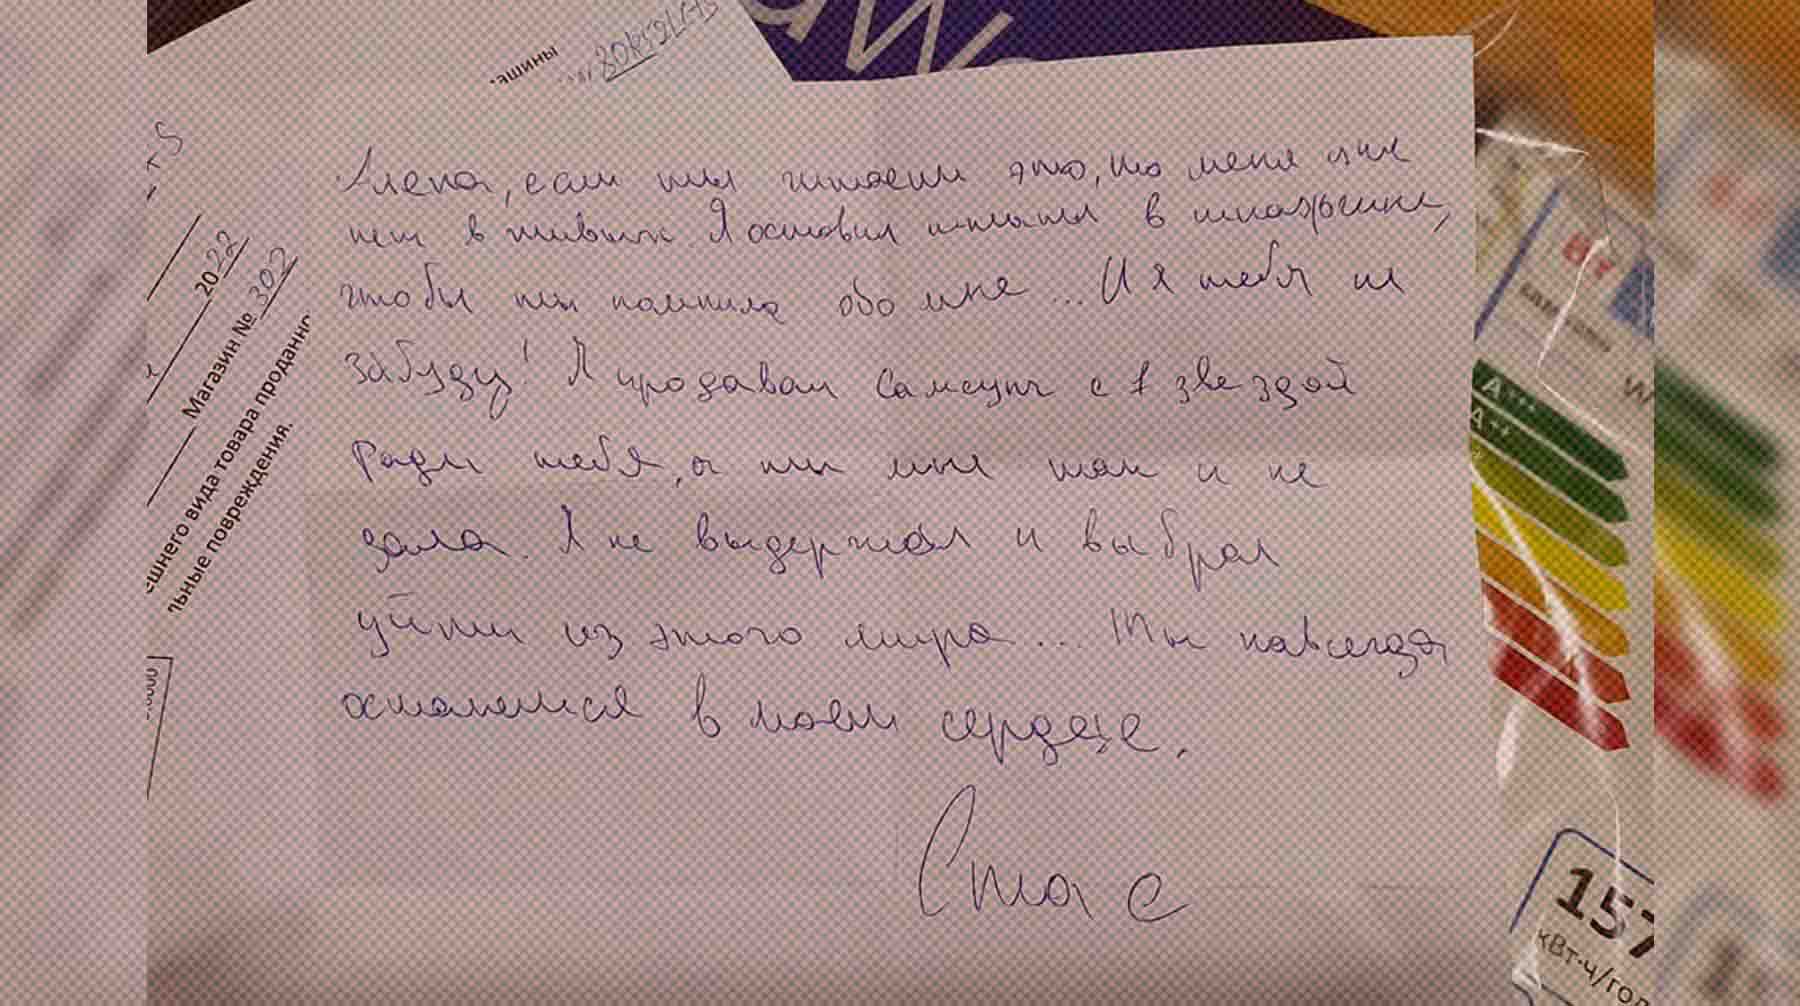 ашины
80R52LCTS
aW
S
2022
Магазин № 302
ешнего вида товара проданно
льные повреждения.
Алена, если ты читаешь это, то меня уже
нет в живых. Я оставил штаты в шкафчике,
чтобы ты помнила обо мне... И я тебя не
забуду! Я продавал Самсунг с 1 звездой
ради тебя, а ты мне так и не
дала. Я не выдержал и выбрал
уйти из этого мира... Ты навсегда
останешься в моем сердце.
Стас
A+++
A++
157
кВт·ч/год